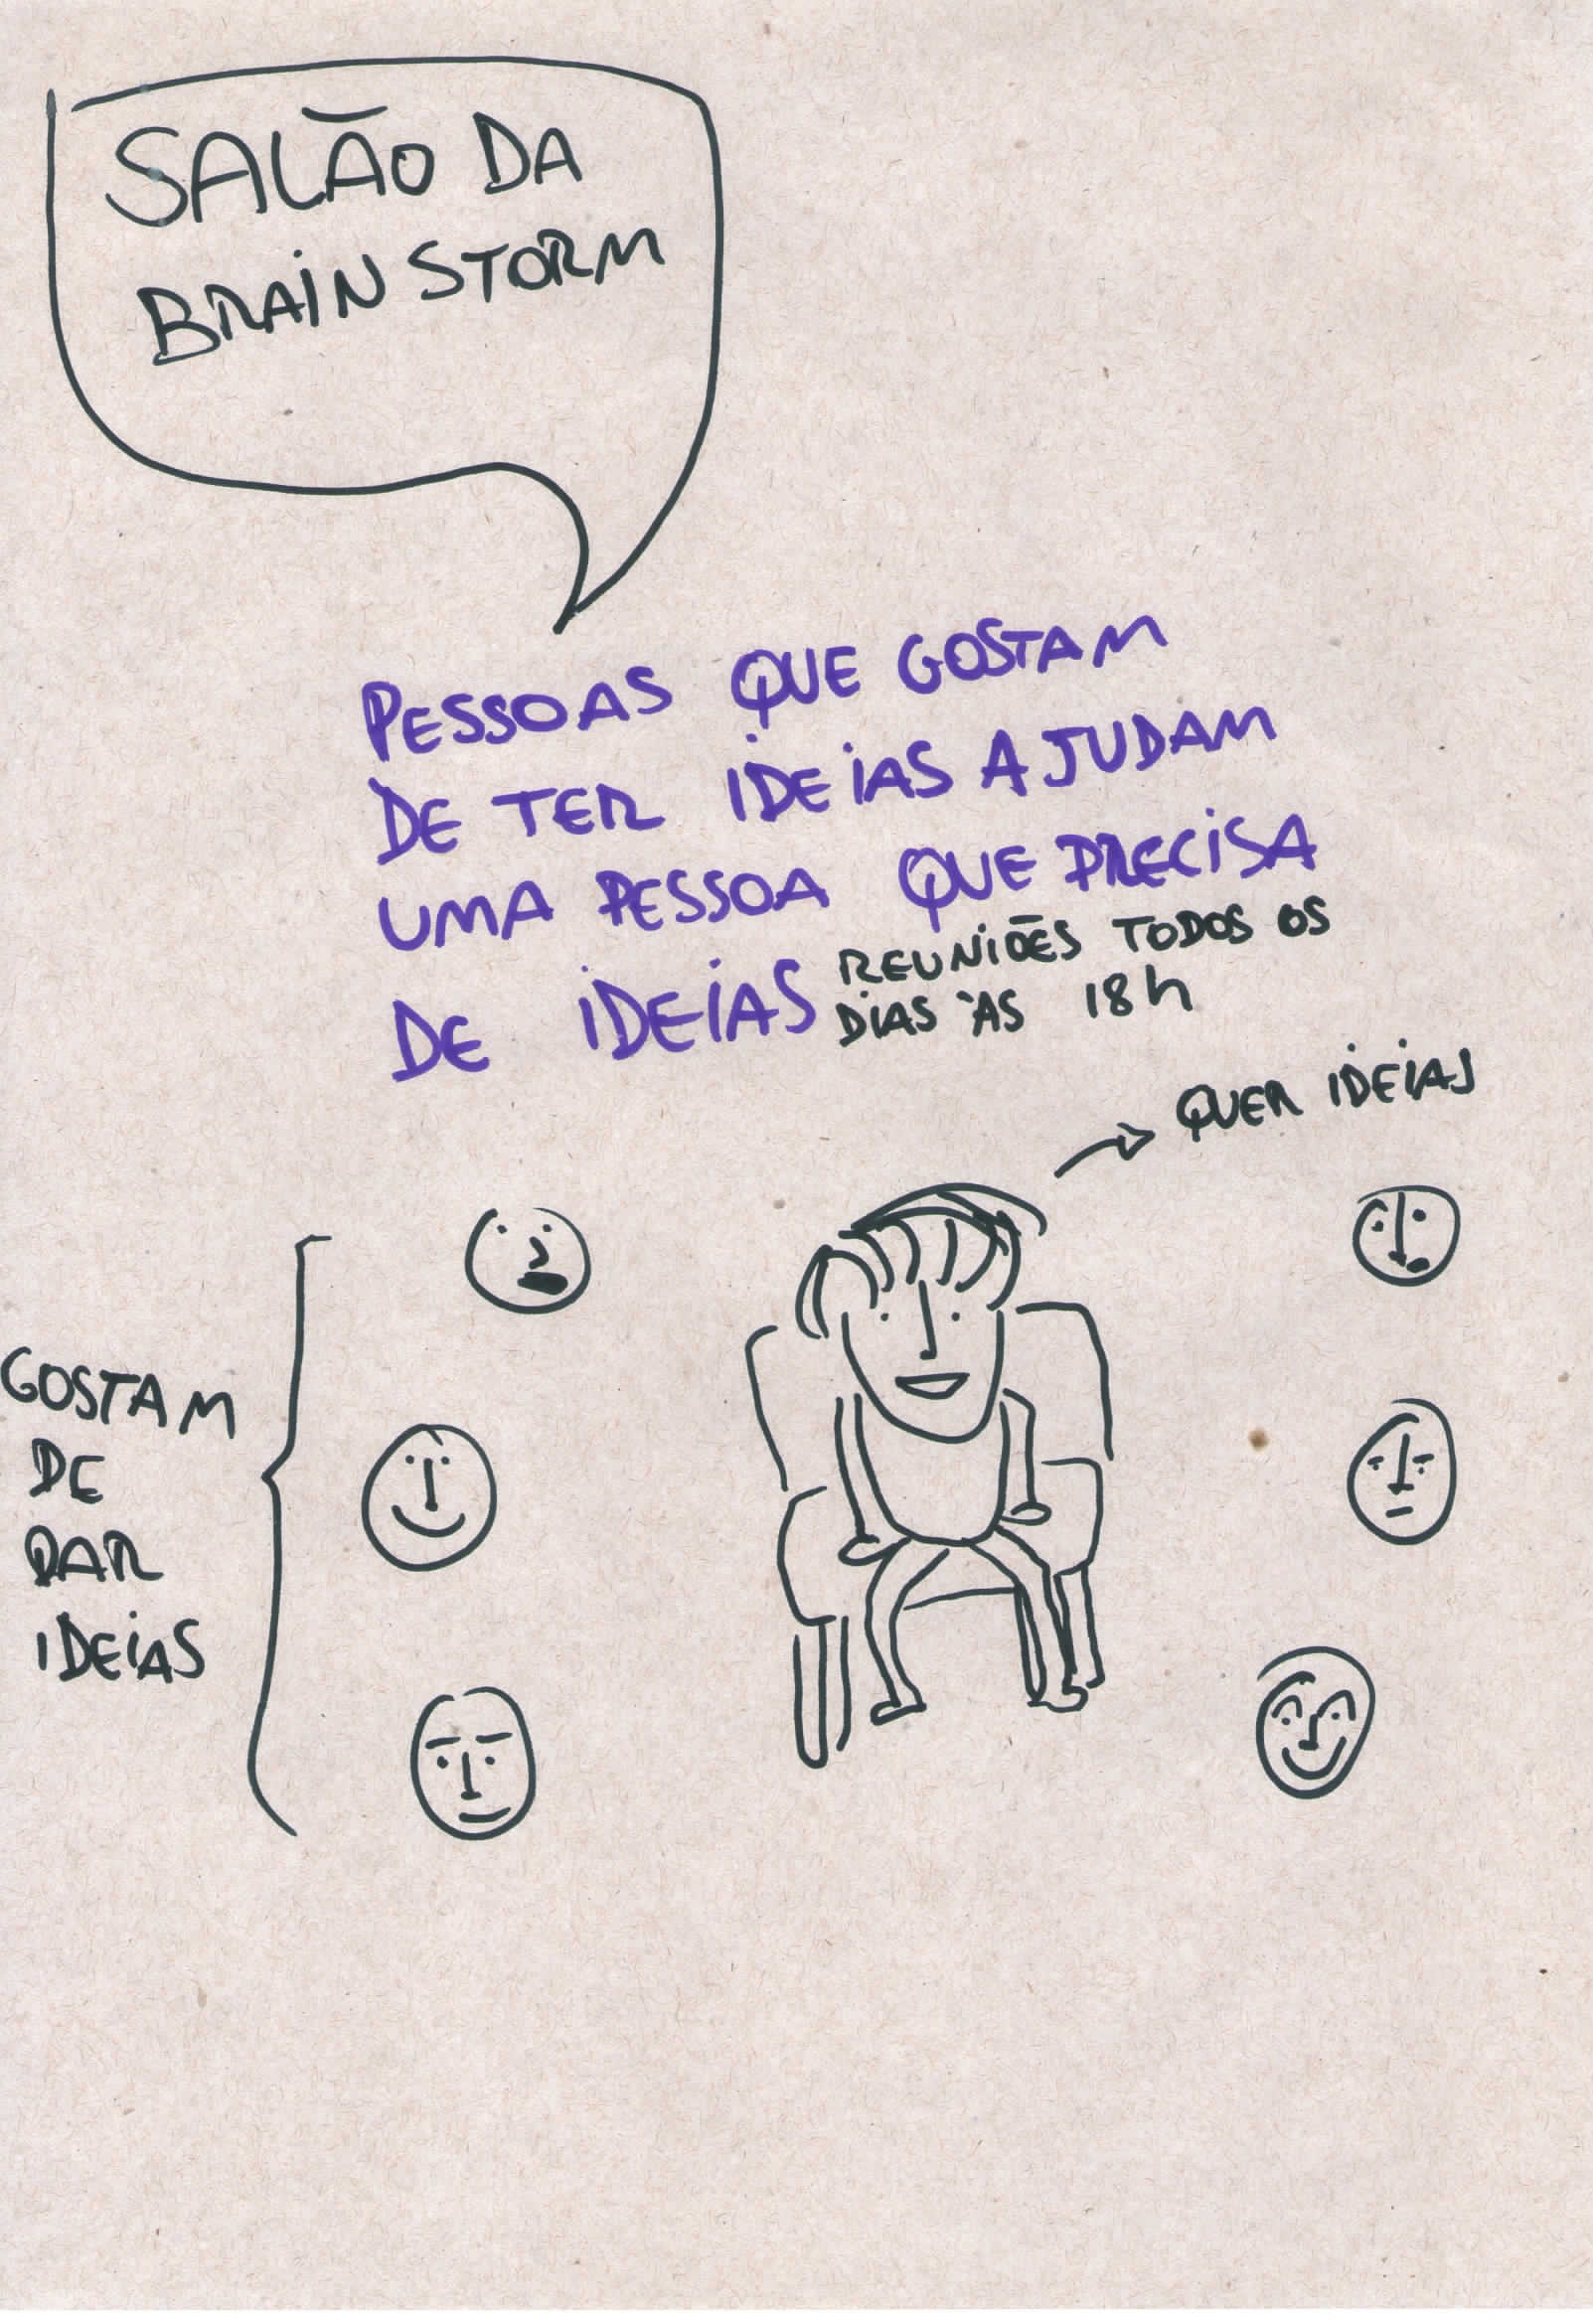 SALÃO DA
BRAIN STORM
PESSOAS QUE GOSTAM
DE TER IDEIAS AJUDAM
UMA PESSOA QUE PRECISA
DE IDEIAS
REUNIÕES TODOS OS
DIAS ÀS 18h
QUER IDEIAS
GOSTAM
DE
DAR
IDEIAS